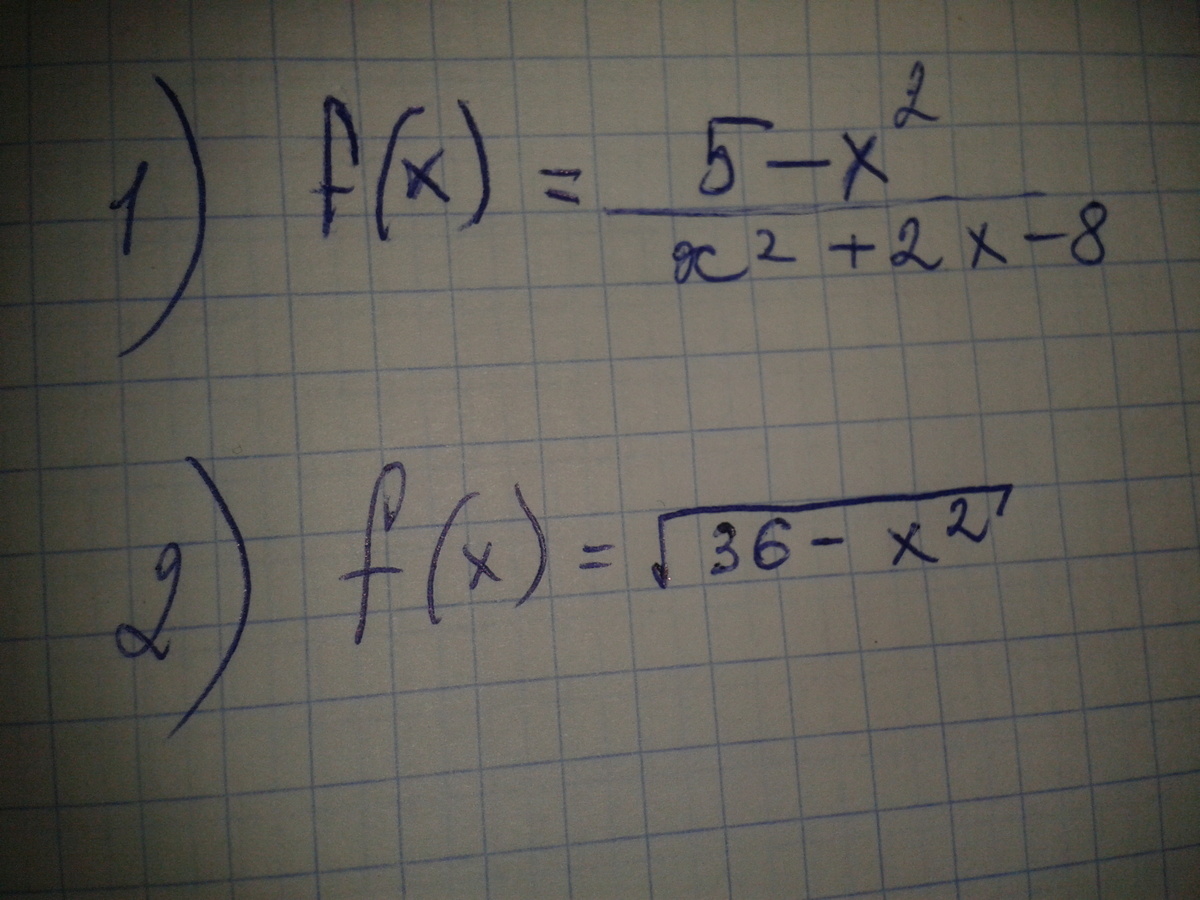 1) f(x) = \frac{5-x^2}{x^2+2x-8}
2) f(x) = \sqrt{36-x^2}